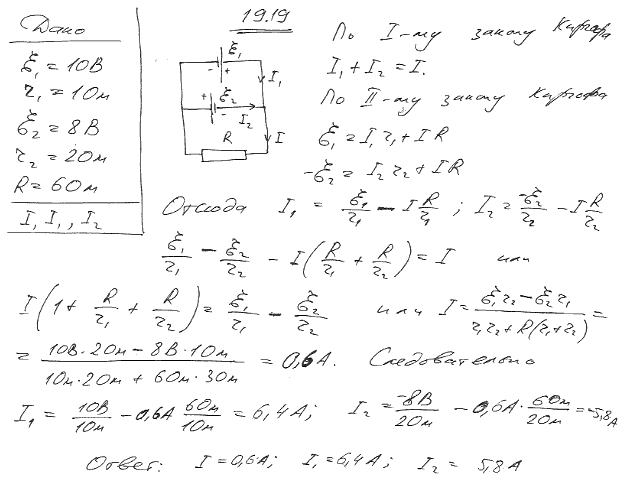 19.19
Дано
ξ₁ = 10В
r₁ = 1Ом
ξ₂ = 8В
r₂ = 2Ом
R = 6Ом
I, I₁, I₂
ξ₁
- +
I₁
+ ξ₂
-
I₂
R
I
По I-му закону Кирхгофа
I₁ + I₂ = I.
По II-му закону Кирхгофа
ξ₁ = I₁r₁ + IR
-ξ₂ = I₂r₂ + IR
Отсюда I₁ = ξ₁/r₁ - I R/r₁ ; I₂ = -ξ₂/r₂ - I R/r₂
ξ₁/r₁ - ξ₂/r₂ - I(R/r₁ + R/r₂) = I или
I(1 + R/r₁ + R/r₂) = ξ₁/r₁ - ξ₂/r₂ или I = (ξ₁r₂ - ξ₂r₁)/(r₁r₂ + R(r₁+r₂)) =
= (10В·2Ом - 8В·1Ом)/(1Ом·2Ом + 6Ом·3Ом) = 0,6А. Следовательно
I₁ = 10В/1Ом - 0,6А 6Ом/1Ом = 6,4А; I₂ = -8В/2Ом - 0,6А· 6Ом/2Ом = -5,8А
Ответ: I = 0,6А; I₁ = 6,4А; I₂ = 5,8А